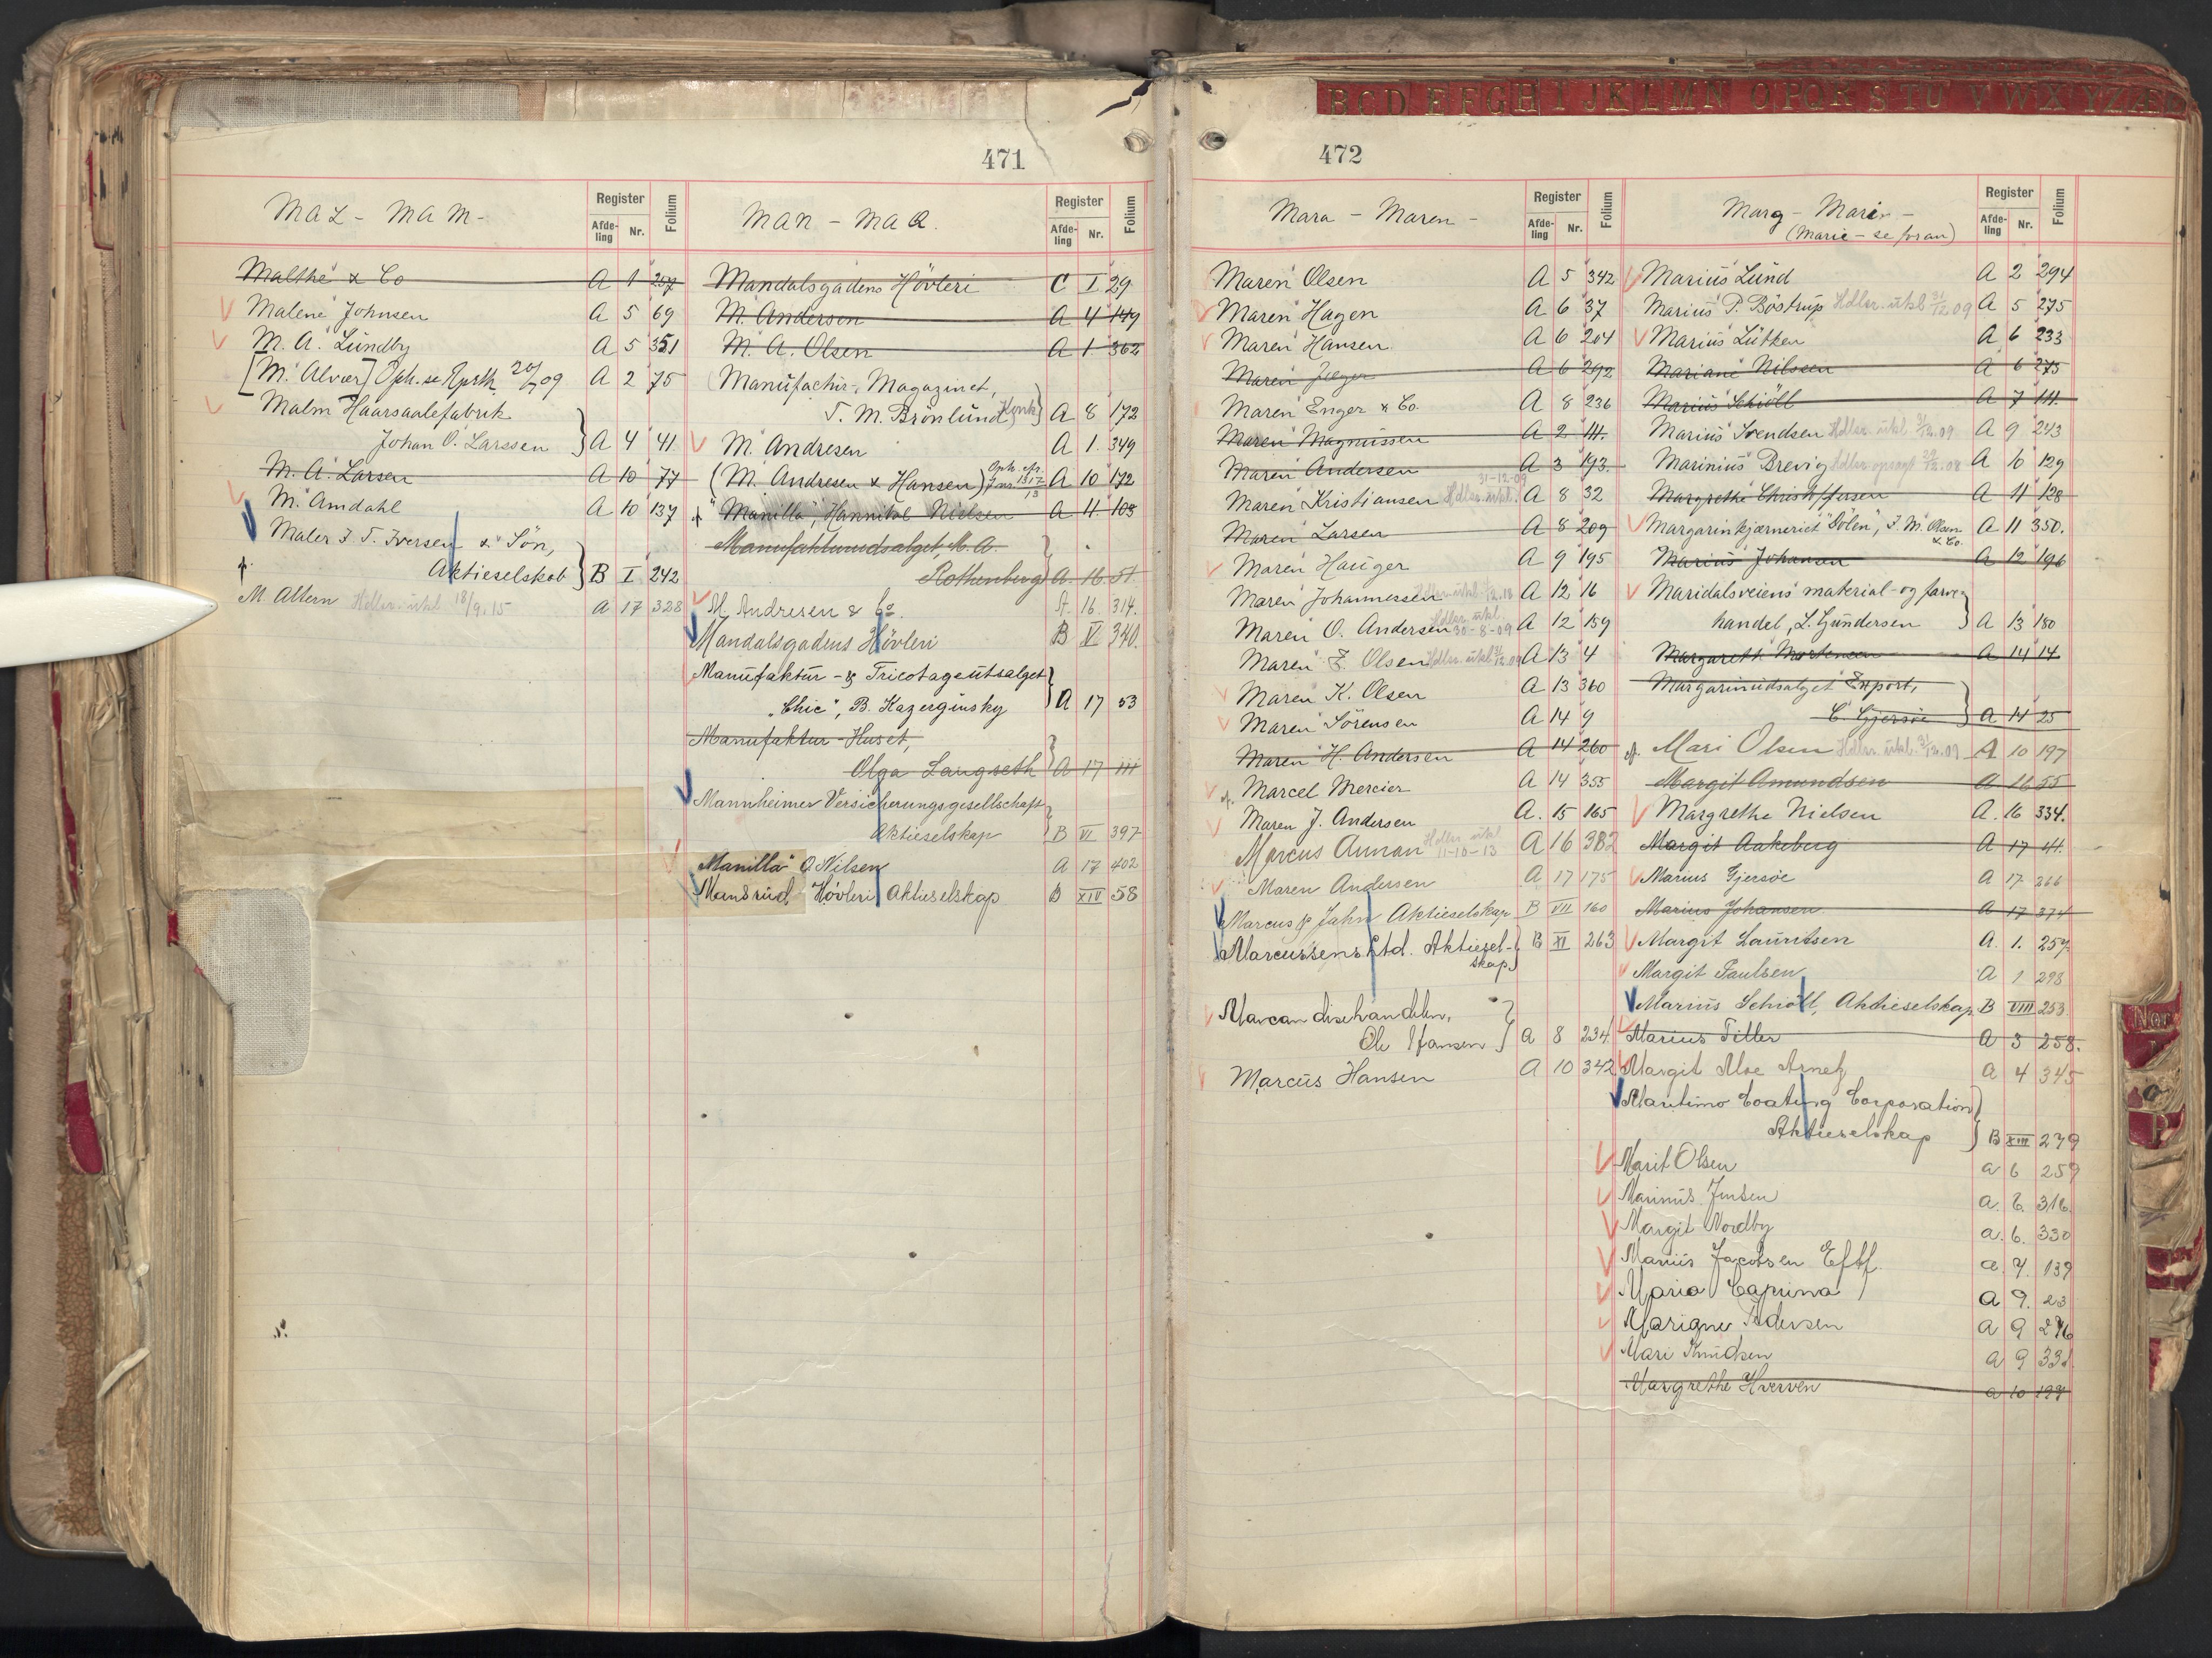 471
MAL - MAM -
Register
Afde-ling Nr. Folium
Malthe & Co A 1 257
Malene Johnsen A 5 69
M. A. Lundby A 5 351
[M. Alver] Oph. se 20/ 09 A 2 75
Malm Haarsaalefabrik
Johan O. Larssen A 4 41.
M. A. Larsen A 10 77
M. Amdahl A 10 137
Maler I. T. Iversen & Sön,
Aktieselskab B I 242
M Altern Hdlsr. utkl 18/9.15 A 17 328
MAN - MAQ.
Register
Afde-ling Nr. Folium
Mandalsgadens Hövleri C I 29
M. Andersen A 4 149
M. A. Olsen A 1 362
Manufactur-Magazinet,
T. M. Brönlund Konk A 8 172
M. Andresen A 1. 349
(M. Andresen & Hansen) Oph. A 10 172
"Manilla", Hannibal Nielsen A 11. 103
Manufakturudsalget, M. A.
Rothenberg A. 16. 51
M. Andresen & Co. A. 16. 314.
Mandalsgadens Hövleri B V 340.
Manufaktur- & Tricotageutsalget
„Chic", B. Kazerginsky A 17 53
Manufaktur-Huset,
Olga Langseth A 17 111
Mannheimer Versicherungsgesellschaft
Aktieselskap B VI 397
"Manilla" O. Nilsen A 17 402
Mansrud Hövleri Aktieselskap B XIV 58
BCD EFGH I JKLMN OPQR S TU V WX YZÆ
472
Mara - Maren -
Register
Afde-ling Nr. Folium
Maren Olsen A 5 342
Maren Hagen A 6 37
Maren Hansen A 6 204
Maren Jæger A 6 292
Maren Enger & Co. A 8 236
Maren Magnussen A 2 111.
Maren Andersen A 3 193.
Maren Kristiansen Hdlsr. utkl. 31-12-09 A 8 32
Maren Larsen A 8 209
Maren Hauger A 9 195
Maren Johannessen A 12 16
Maren O. Andersen Hdlsr. utkl. 30-8-09 A 12 159
Maren E. Olsen Hdlsr. utkl. 31/12.09 A 13 4
Maren K. Olsen A 13 360
Maren Sörensen A 14 9
Maren H. Andersen A 14 260
Marcel Mercier A 14 355
Maren J. Andersen A. 15 165
Marcus Aunan Hdlsr utkl 11-10-13 A 16 382
Maren Andersen A 17 175
Marcus & Jahn Aktieselskap B VII 160
Marcussens Ltd. Aktiesel-
skap B XI 263
Marcandisehandelen,
Ole Hansen A 8 234
Marcus Hansen A 10 342
Marg - Marin -
(Marie - se foran)
Register
Afde-ling Nr. Folium
Marius Lund A 2 294
Marius P. Böstrup Hdlsr. utkl 31/12 09 A 5 275
Marius Lütken A 6 233
Mariane Nilssen A 6 275
Marius Schiöll A 7 111.
Marius Svendsen Hdlsr. utkl. 31/12.09 A 9 243
Marinius Brevig Hdlsr. opsagt A 10 129
Margrethe Christoffersen A 11 128
Margarinkjærneriet "Dölen", I. M. Olsen
& Co. A 11 350.
Marius Johansen A 12 196
Maridalsveiens material- og farve-
handel, L. Gundersen A 13 180
Margareth Mortensen A 14 14
Margarinudsalget Export,
C. Gjersöe A 14 25
Mari Olsen Hdlsr. utkl. 31/12.09 A 10 197
Margit Amundsen A 16 55
Margrethe Nielsen A. 16 334.
Margit Aakeberg A 17 41.
Marius Gjersöe A 17 266
Marius Johansen A 17 374
Margit Lauritsen A. 1. 257.
Margit Paulsen A 1 293
Marius Schiöll, Aktieselskap B VIII 253
Marius Tiller A 3 258.
Margit Moe Arnet A 4 345
Maritimo Coating Corporation
Aktieselskap B XIII 279
Marit Olsen A 6 259
Marinus Jensen A. 6. 316.
Margit Nordby A. 6. 330
Marius Jacobsen Eftf. A. 7. 139
Maria Caprina A 9. 23
Marigne Pedersen A 9 276
Mari Knudsen A 9 331.
Margrethe Hverven A 10 197
Nor
P